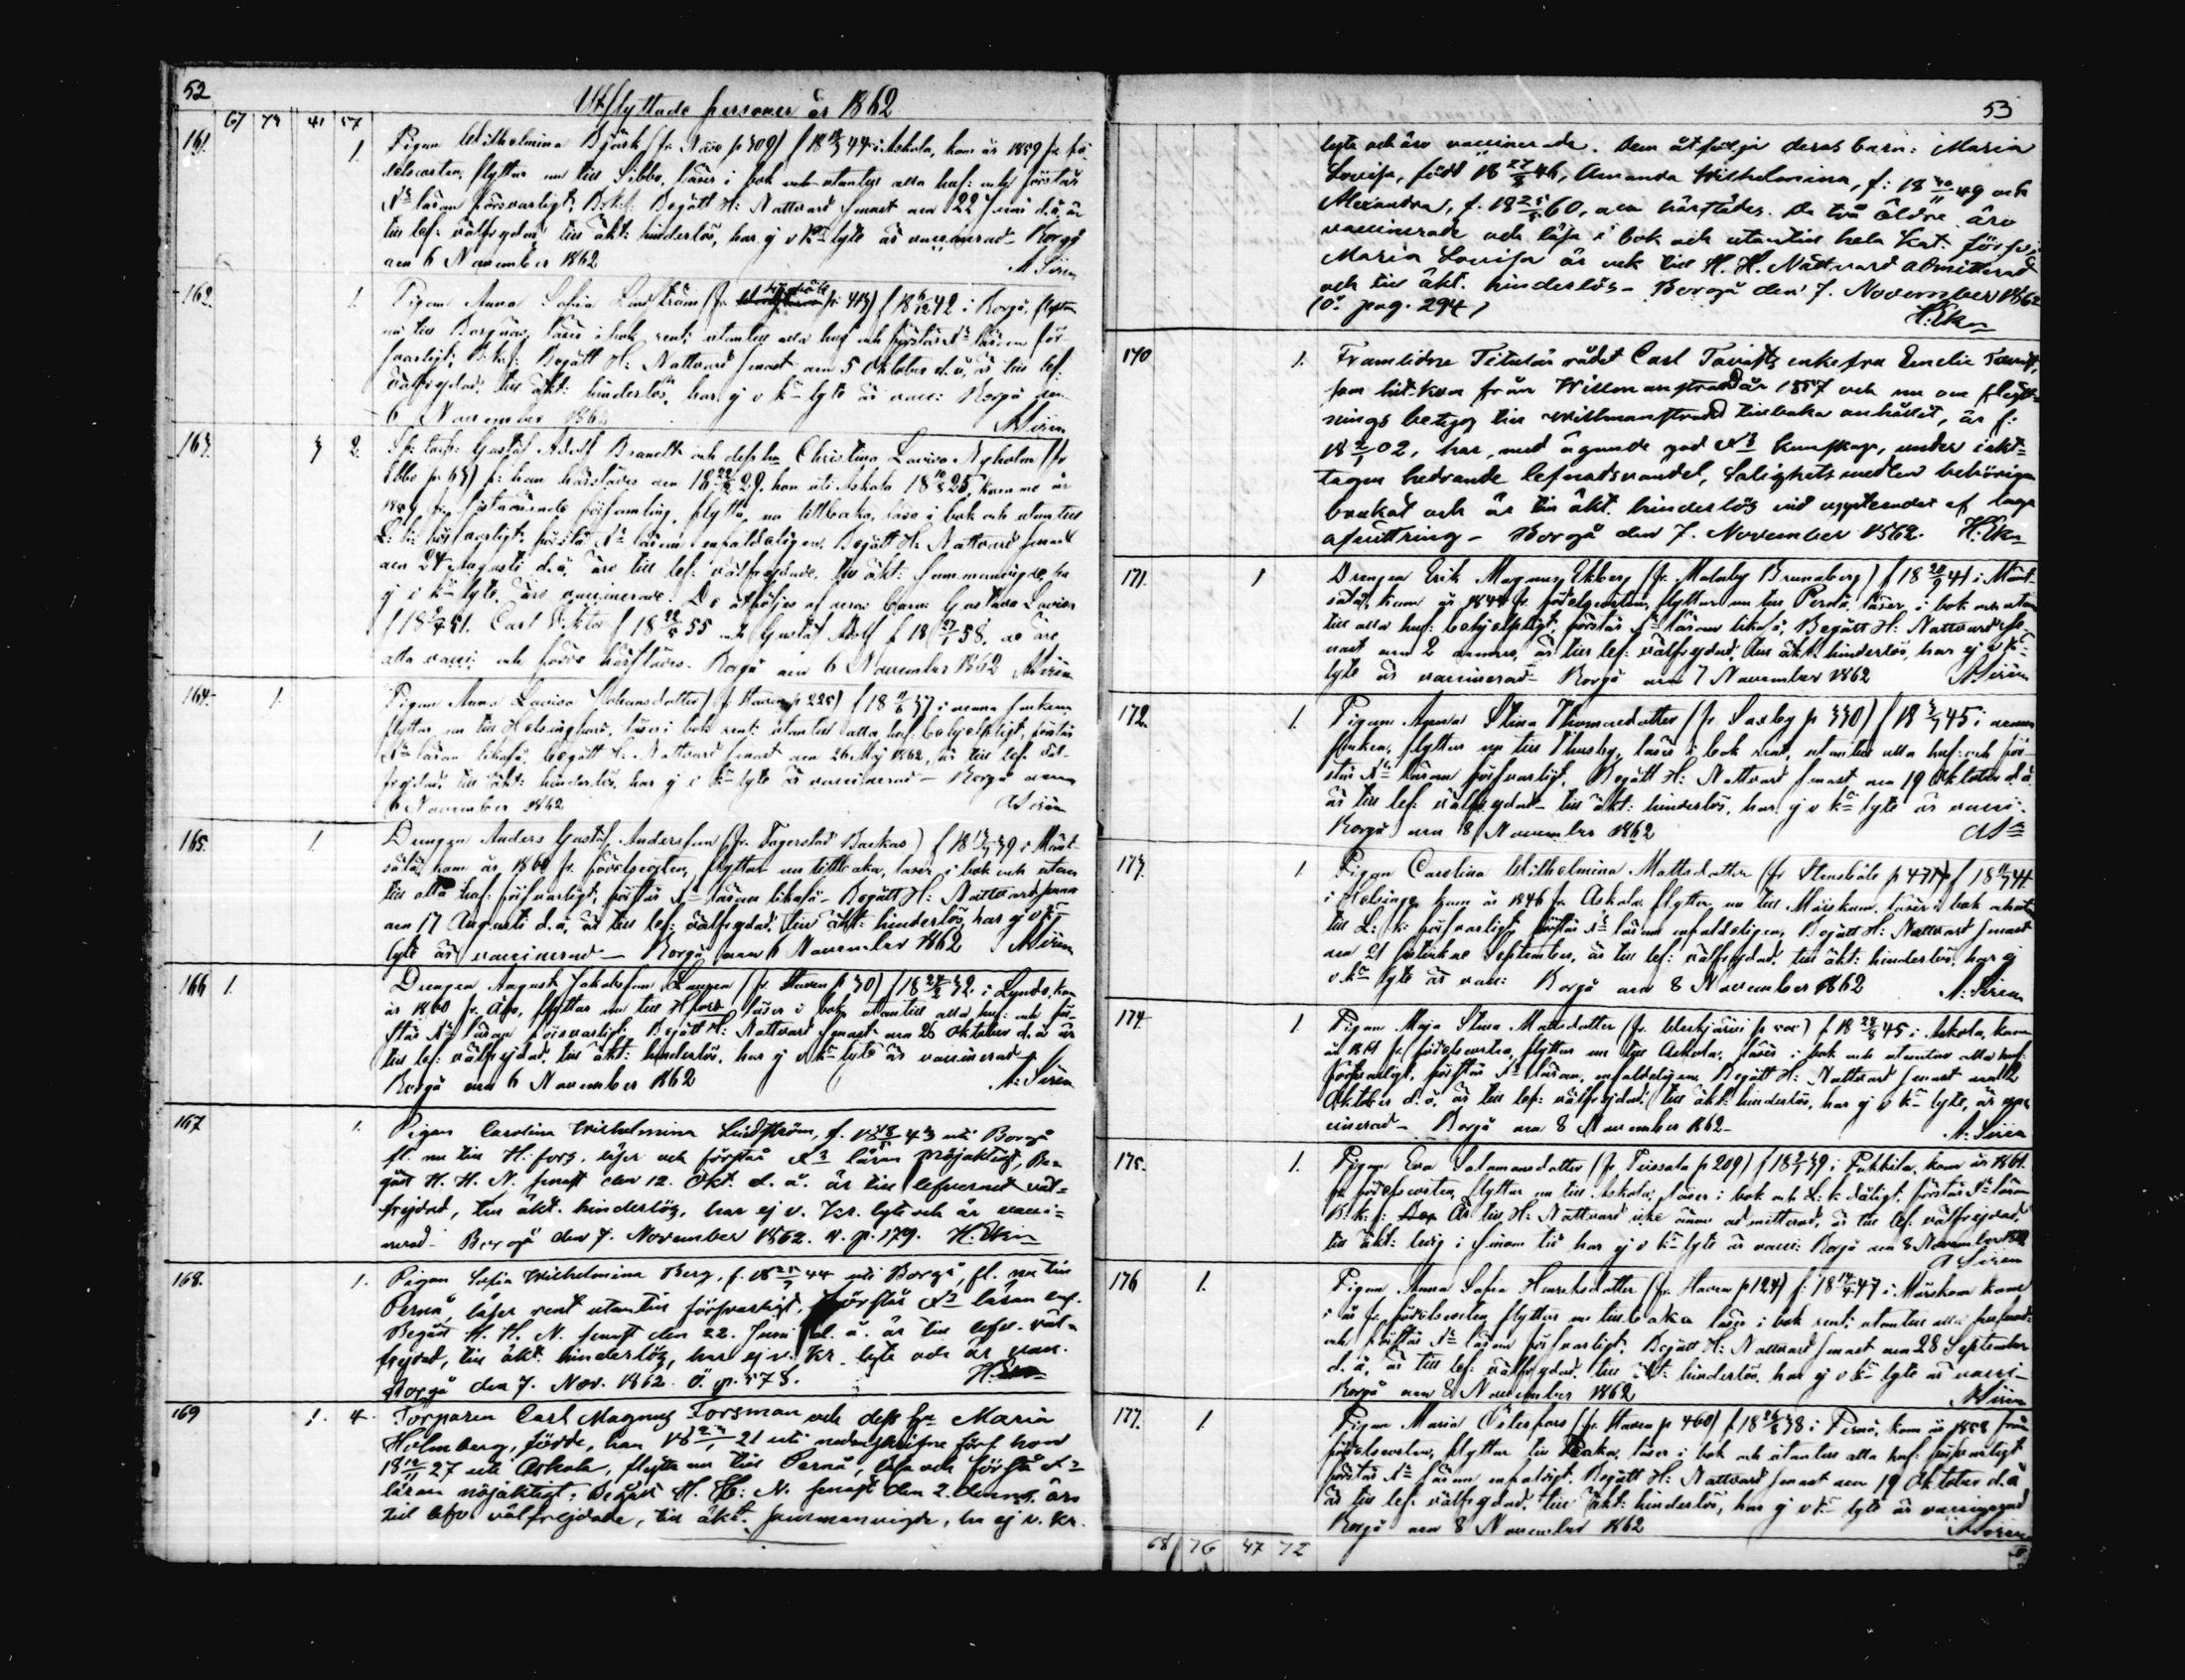 52
Utflyttade personer år 1862
67 74 41 57
161. 1. Pigan Wilhelmina Björk (fr. p 309) f 18 44 i Askola, kom år 1859 fr. fö-
delseorten, flyttar nu till Sibbo, läser i bok och utantill alla huf: och förstår
Xs läran försvarligt; Begått H: Nattvard senast den 22 Juni d.å, är
till lef: välfrejdad till äkt: hinderlös, har ej v k lyte är vaccinerad – Borgå
den 6 November 1862 A Sirén
162. 1. Pigan Anna Sofia Lindström (fr. p 413) f 18 42 i Borgå, flyttar
nu till Borgnäs, läser i bok rent, utantill alla huf och förstår Xs läran för-
svarligt; Begått H: Nattvard senast den 5 Oktober d.å, är till lef:
välfrejdad, till äkt: hinderlös, har ej v k lyte är vacc: Borgå den
6 November 1862 A Sirén
163. 3 2. Gustaf Adolf Brandt och dess hu Christina Lovisa Nyholm (fr
Ebbo p 63) f: han härstädes den 18 29, hon uti Askola 18 25, komne år
församling, flytta nu tillbaka, läsa i bok och utantill
L: k: försvarligt förstå Xs läran enfaldeligen. Begått H: Nattvard senast
den 24 Augusti d.å, äro till lef: välfrejdade, till äkt: sammanvigde, ha
ej v k lyte, äro vaccinerade. De åtföljas af deras barn: Gustava Lovisa
f 18 51. Carl Viktor f 18 22/5 55 och Gustaf Adolf f 18 27/1 58, de äro
alla vacc: och födde härstädes. Borgå den 6 November 1862 A Sirén
164. 1. Pigan Anna Lovisa Johansdotter (fr. Haven p 225) f 18 37 i denna socken
flyttar nu till Helsingfors, läser i bok rent, utantill alla huf: behjelpligt, förstår
Xs läran likaså, begått H: Nattvard senast den 26 Maj 1862, är till lef: väl-
frejdad, till äkt: hinderlös, har ej v k lyte är vaccinerad – Borgå den
6 November 1862 A Sirén
165. 1. Drengen Anders Gustaf Andersson (fr. Fagerstad Backas) f 18 39 i Mänt-
sälä, kom år 1860 fr. födelseorten, flyttar nu tillbaka, läser i bok och utan
till alla huf: försvarligt, förstår Xs läran likaså – Begått H: Nattvard senast
den 17 Augusti d.å, är till lef: välfrejdad, till äkt: hinderlös, har ej v k
lyte är vaccinerad – Borgå den 6 November 1862 A Sirén
166 1. Drengen August Jakobsson (fr. Haven p 30) f 18 24/2 32 i kom
år 1860 fr. Åbo, flyttar nu till Hfors läser i bok utantill alla huf: och för-
står Xs läran försvarligt; Begått H: Nattvard senast den 26 Oktober d.å är
till lef: välfrejdad, till äkt: hinderlös, har ej v k lyte är vaccinerad –
Borgå den 6 November 1862 A: Sirén
167 1. Pigan Carolina Wilhelmina Lindström, f. 18 43 uti Borgå
fl. nu till H:fors, läser och förstår Xs läran nöjaktigt, Be-
gått H. H. N. senast den 12. Okt. d. å. är till lefvernet väl-
frejdad, till äkt. hinderlös, har ej v. kr. lyte och är vacci-
nerad – Borgå den 7. November 1862. v. p. 179. H. Ekn
168. 1. Pigan Sofia Wilhelmina Berg, f. 18 44 uti Borgå, fl. nu till
Pernå, läser rent utantill försvarligt, förstår Xs läran enf.
Begått H. H. N. senast den 22. Juni d. å. är till lefv. väl-
frejdad, till äkt. hinderlös, har ej v. kr. lyte och är vacc.
Borgå den 7. Nov. 1862. ö. p. 578. H: Ekn
169 1. 4. Torparen Carl Magnus Forsman och dess hu Maria
Holmberg, födde, han 18 21 uti förs. hon
18 27 uti Askola, flytta nu till Pernå, läsa och förstå X
läran nöjaktigt; Begått H. H: N. senast den 2. dennes, äro
till lefv välfrejdade, till äkt. sammanvigde, ha ej v. kr.
53
lyte och äro vaccinerade. Dem åtfölja deras barn: Maria
Lovisa, född 18 27/8 46, Amanda Wilhelmina, f: 18 49 och
Alexandra, f. 18 60, alla härstädes. De två äldre äro
vaccinerade och läsa i bok och utantill hela kat. försv.;
Maria Lovisa är ock till H. H. Nattvard admitterad
och till äkt. hinderlös – Borgå den 7. November 1862
(ö. pag. 294) H: Ekn
170 1. Framlidne Titulär rådet Carl Tavasts enkefru Emelie Tavast,
som hit kom från Willmanstrand år 1857 och nu om flytt-
nings betyg till Willmanstrand tillbaka anhållit, är f:
18 2/1 02, har, med ägande god Xs kunskap, under iakt-
tagen hedrande lefnadsvandel, Salighetsmedlen behörigen
brukat och är till äkt. hinderlös vid uppteendet af laga
afvittring – Borgå den 7. November 1862. H: Ekn
171. 1 Drengen Erik Magnus Ekberg (fr. Malmby Brunaberg) f 18 41 i Mänt-
sälä, kom år 1844 fr. födelseorten, flyttar nu till Pernå, läser i bok och utan
till alla huf: behjelpligt, förstår Xs läran likaså, Begått H: Nattvard se-
nast den 2 dennes, är till lef: välfrejdad, till äkt: hinderlös, har ej v k
lyte är vaccinerad – Borgå den 7 November 1862 A Sirén
172. 1. Pigan Anna Stina Thomasdotter (fr Saxby p 330) f 18 45 i denna
socken, flyttar nu till Thusby, läser i bok rent, utantill alla huf: och för-
står Xs läran försvarligt. Begått H: Nattvard senast den 19 Oktober d.å
är till lef: välfrejdad – till äkt: hinderlös, har ej v k lyte är vacc:
Borgå den 8 November 1862 A S
173. 1. Pigan Carolina Wilhelmina Mattsdotter (fr Stensböle p 471) f 18 44
i Helsinge kom år 1846 fr. Askola, flyttar nu till Mörskom, läser i bok och utan
till L: k: försvarligt, förstår Xs läran enfaldeligen, Begått H: Nattvard senast
den 21 sistlidne September, är till lef: välfrejdad, till äkt: hinderlös, har ej
v k lyte är vacc: Borgå den 8 November 1862 A: Sirén
174. 1. Pigan Maja Stina Mattsdotter (fr. p ) f 18 45 i Askola, kom
år 1861 fr. födelseorten, flyttar nu till Askola, läser i bok och utantill alla huf:
försvarligt, förstår Xs läran, enfaldeligen, Begått H: Nattvard senast den 12
Oktober d.å, är till lef: välfrejdad, till äkt: hinderlös, har ej v k lyte, är vac-
cinerad – Borgå den 8 November 1862 – A: Sirén
175. 1. Pigan Eva Salomonsdotter (fr Teissala p 209) f 18 39 i Pukkila, kom år 1861.
fr födelseorten, flyttar nu till Askola, läser i bok och L: k dåligt, förstår Xs läran
Är till H: Nattvard icke ännu admitterad, är till lef: välfrejdad,
till äkt: ledig i sinom tid har ej v k lyte är vacc: Borgå den 8 November 1862
A Sirén
176 1. Pigan Anna Sofia Henriksdotter (fr. Haven p 124) f: 18 47 i Mörskom kom
i år fr. födelseorten flyttar nu tillbaka läser i bok rent, utantill alla
och förstår Xs läran försvarligt. Begått H: Nattvard senast den 28 September
d.å, är till lef: välfrejdad, till äkt: hinderlös, har ej v k lyte är vacci-
Borgå den 8 November 1862 A Sirén
177. 1 Pigan Maria (fr. Haven p 460) f 18 38 i Pernå, kom år 1858 från
födelseorten, flyttar till baka, läser i bok och utantill alla huf: försvarligt
förstår Xs läran enfaldigt. Begått H: Nattvard senast den 19 Oktober d.å
är till lef: välfrejdad, till äkt: hinderlös, har ej v k lyte är vaccinerad
Borgå den 8 November 1862 A Sirén
68 76 47 72